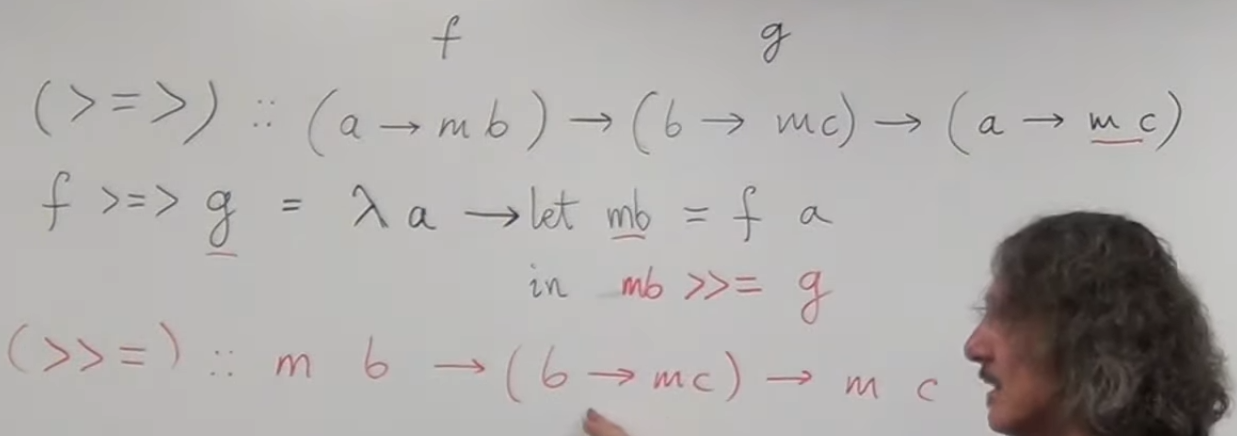 f g
(>=>) :: (a → m b) → (b → mc) → (a → m c)
f >=> g = λ a → let mb = f a
in mb >>= g
(>>=) :: m b → (b → mc) → m c